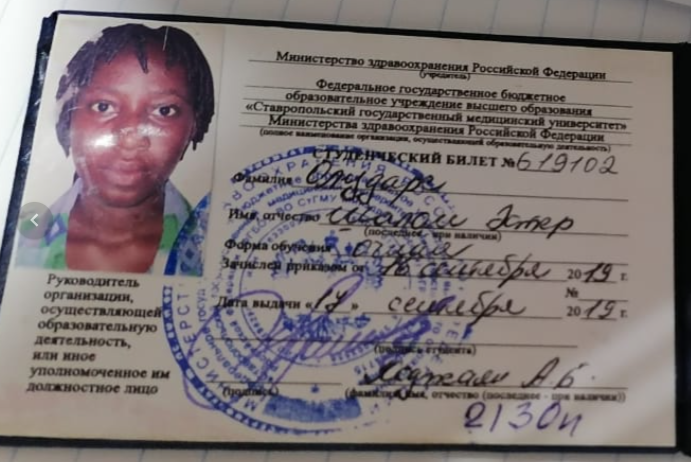 Министерство здравоохранения Российской Федерации
(учредитель)
Федеральное государственное бюджетное
образовательное учреждение высшего образования
«Ставропольский государственный медицинский университет»
Министерства здравоохранения Российской Федерации
(полное наименование организации, осуществляющей образовательную деятельность)
СТУДЕНЧЕСКИЙ БИЛЕТ № 619102
Фамилия
Имя, отчество Эстер
(последнее - при наличии)
Форма обучения очная
Зачислен приказом от 16 сентября 2019 г.
№
Дата выдачи «17» сентября 2019 г.
(подпись студента)
Руководитель
организации,
осуществляющей
образовательную
деятельность,
или иное
уполномоченное им
должностное лицо
(подпись)
А.Б.
(фамилия, имя, отчество (последнее - при наличии))